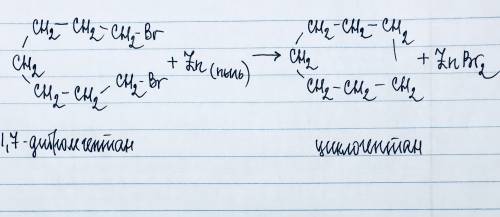 CH₂–CH₂–CH₂–Br CH₂–CH₂–CH₂
CH₂ + Zn (пыль) → CH₂ | + ZnBr₂
CH₂–CH₂–CH₂–Br CH₂–CH₂–CH₂
1,7-дибромгептан циклогептан